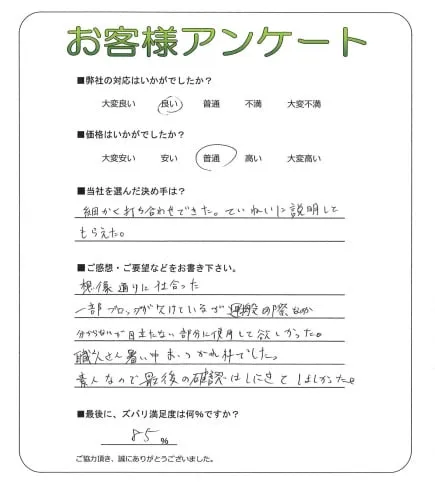 お客様アンケート
■弊社の対応はいかがでしたか？
大変良い 良い 普通 不満 大変不満
■価格はいかがでしたか？
大変安い 安い 普通 高い 大変高い
■当社を選んだ決め手は？
細かく打ち合わせできた。ていねいに説明して
もらえた。
■ご感想・ご要望などをお書き下さい。
想像通りに仕合った
一部ブロックが欠けているが運搬の際なのか
分からないが目立たない部分に使用して欲しかった。
職人さん暑い中おつかれ様でした。
素人なので最後の確認はしにきてほしかった。
■最後に、ズバリ満足度は何％ですか？
85 %
ご協力頂き、誠にありがとうございました。